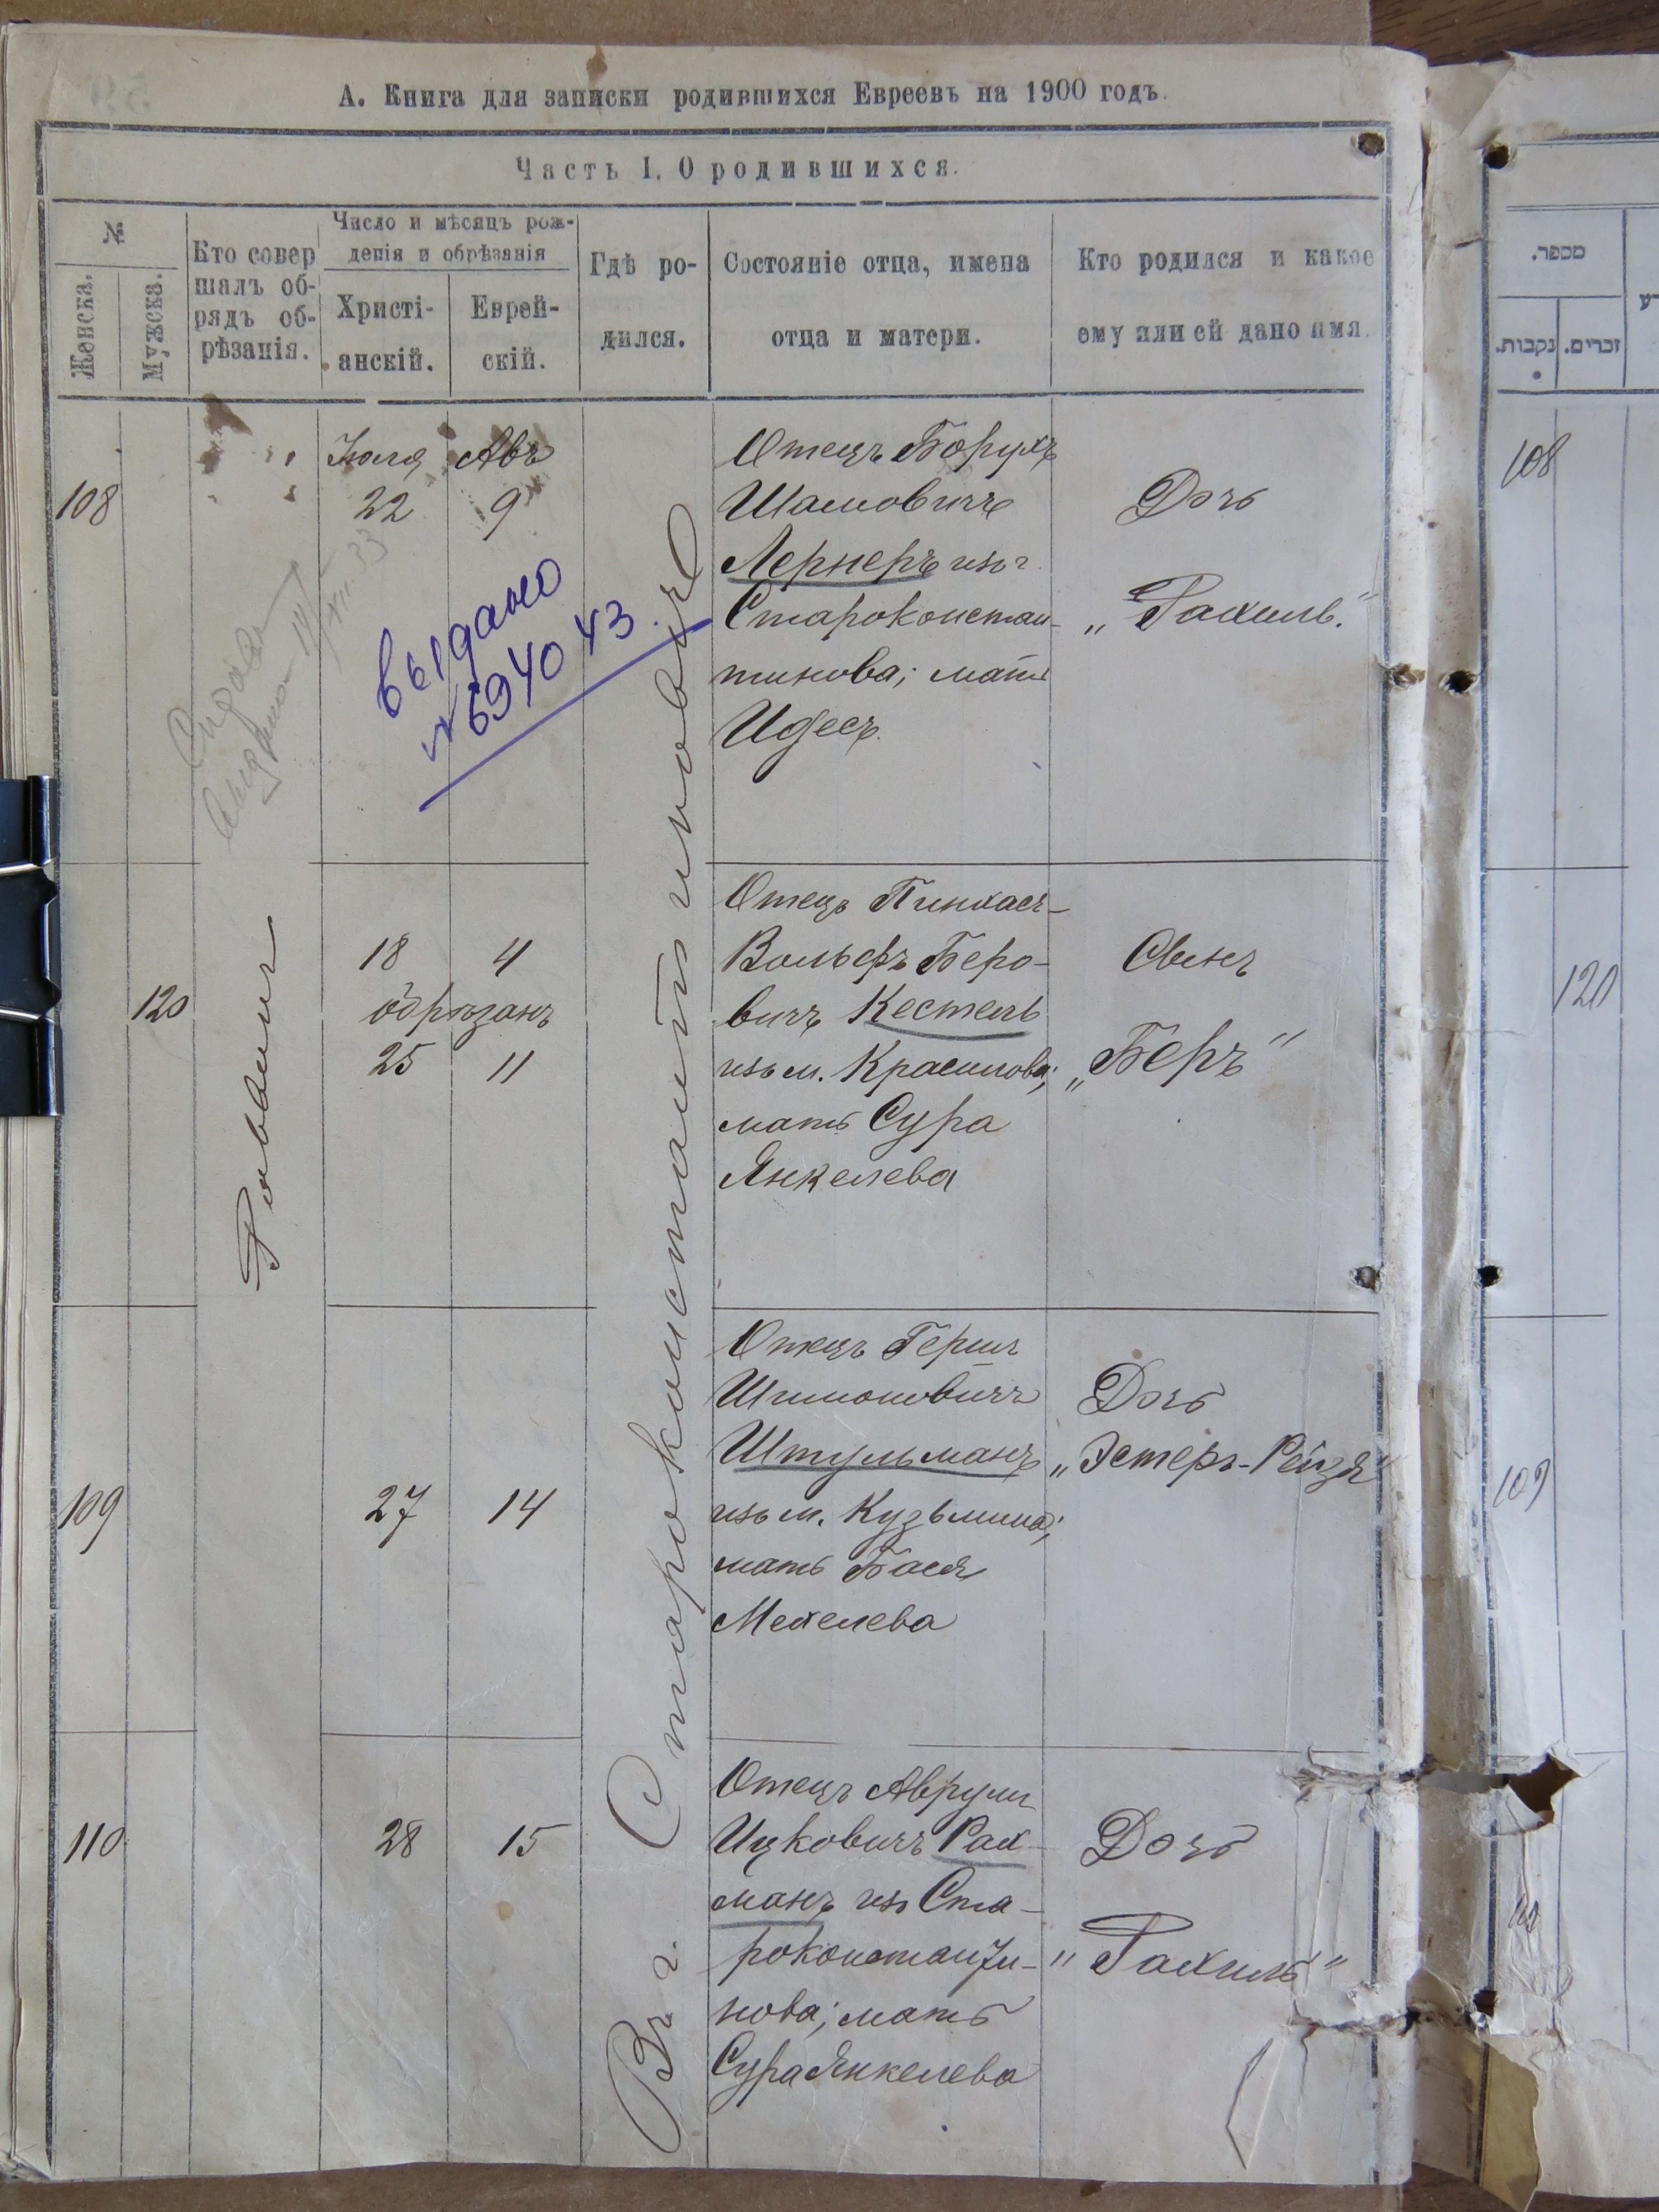 А. Книга для записки родившихся Евреевъ на 1900 годъ.
Часть I. О родившихся.
№
Женска.
Мужска.
Кто совер
шалъ об-
рядъ об-
рѣзанія.
Число и мѣсяцъ рож-
денія и обрѣзанія
Христі-
анскій.
Еврей-
скій.
Гдѣ ро-
дился.
Состояніе отца, имена
отца и матери.
Кто родился и какое
ему или ей дано имя.
108
Іюля
22
Авъ
9
Отецъ Борухъ
Шамовичъ
Лернеръ изъ г.
Старокостан-
тинова; мать
Идесъ.
Дочь
„Рахиль."
выдано
№ 694043.
Раввинъ
Въ г. Староконстантиновѣ
120
18 4
обрѣзанъ
25 11
Отецъ Пинхасъ-
Вольфъ Беро-
вичъ Кестель
изъ м. Красилова;
мать Сура
Янкелева
Сынъ
„Беръ"
109
27 14
Отецъ Гершъ
Шимоновичъ
Штульманъ
изъ м. Кузьмина;
мать Бася
Мехелева
Дочь
„Эстеръ-Рейзя"
110
28 15
Отецъ Аврумъ
Ицковичъ Рах-
манъ изъ Ста-
роконстанти-
нова; мать
Сура Янкелева
Дочь
"Рахиль"
מספר.
נקבות.
זכרים.
108
120
109